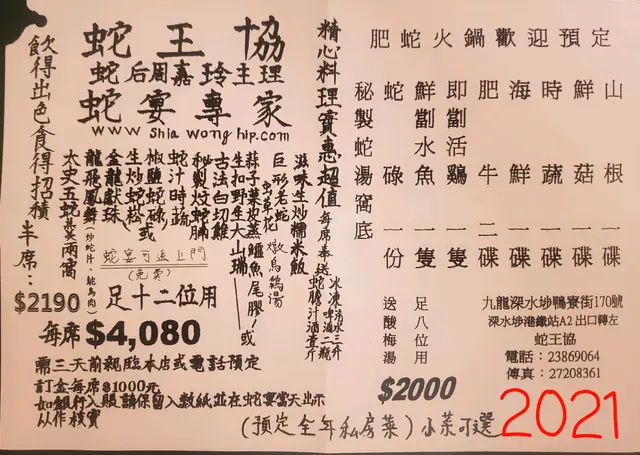 蛇王協
蛇后周嘉玲主理
蛇宴專家
www shia wong hip.com
精心料理實惠超值
每席奉送
蛇膽汁酒壹斤
滋味生炒糯米飯
巨形老蛇
燉烏鷄湯
生扣野生大山瑞
古法白切鷄
秘製炆蛇腩
蛇汁時蔬
椒鹽蛇碌
或
生炒蛇松
金龍獻珠
龍飛鳳舞(炒蛇片、鴕鳥肉)
太史五蛇羹兩窩
飲得出色食得招積
半席:
$2190
蛇宴可送上門
(免費)
足十二位用
每席$4,080
需三天前親臨本店或電話預定
訂金每席$1000元
如銀行入賬請保留入數紙並在蛇宴當天出示
以作核實
肥蛇火鍋歡迎預定
秘製蛇湯窩底
蛇碌一份
鮮劏水魚一隻
即劏活鷄一隻
肥牛二碟
海鮮一碟
時蔬一碟
鮮菇一碟
山根一碟
送酸梅湯
足八位用
$2000
九龍深水埗鴨寮街170號
深水埗港鐵站A2出口轉左
蛇王協
電話：23869064
傳真：27208361
(預定全年私房菜)小菜可選
2021